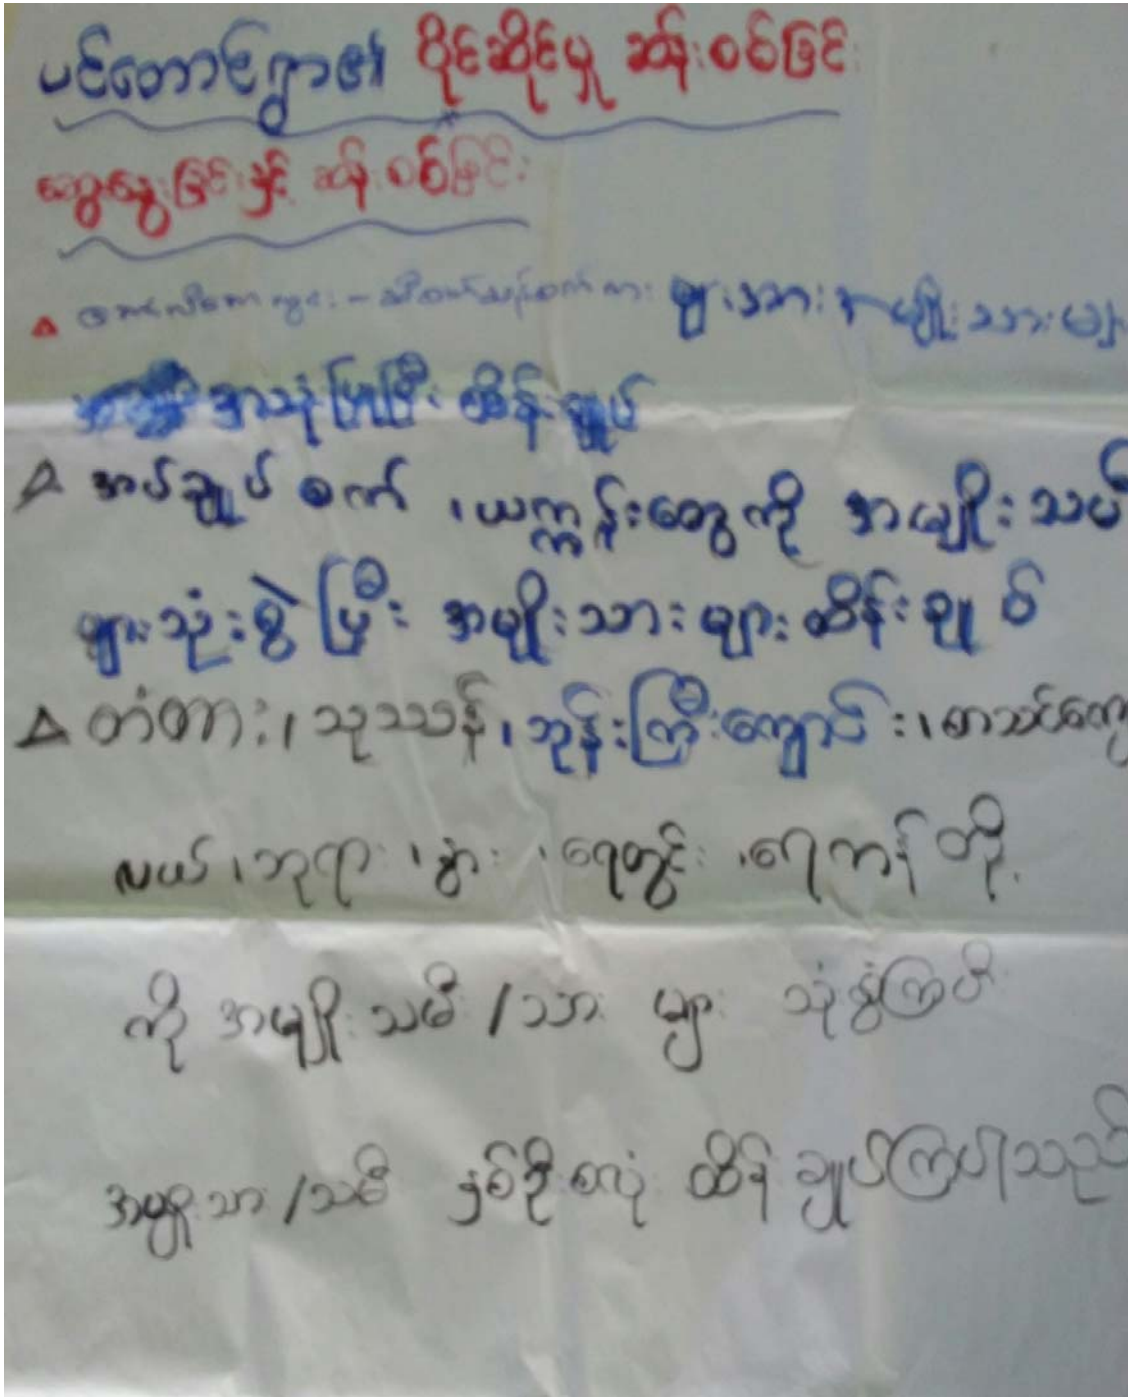 ပင်တောင်ရွာ၏ ပိုင်ဆိုင်မှု ဆန်းစစ်ခြင်း
ဆွေးနွေးခြင်းနှင့် ဆန်းစစ်ခြင်း
များအား အမျိုးသားများ
အသုံးပြုပြီး ထိန်းချုပ်
Δ အပ်ချုပ်စက် ၊ယက္ကန်းတွေကို အမျိုးသမီး
များသုံးစွဲပြီး အမျိုးသားများထိန်းချုပ်
Δ တံတား၊ သုဿန်၊ဘုန်းကြီးကျောင်း၊စာသင်ကျော
လယ်၊ဘုရား၊နွား၊ရေတွင်း၊ရေကန်တို့
ကို အမျိုးသမီး/သား များ သုံးစွဲကြပြီး
အမျိုးသား/သမီး နှစ်ဦးစလုံး ထိန်းချုပ်ကြပါသည်